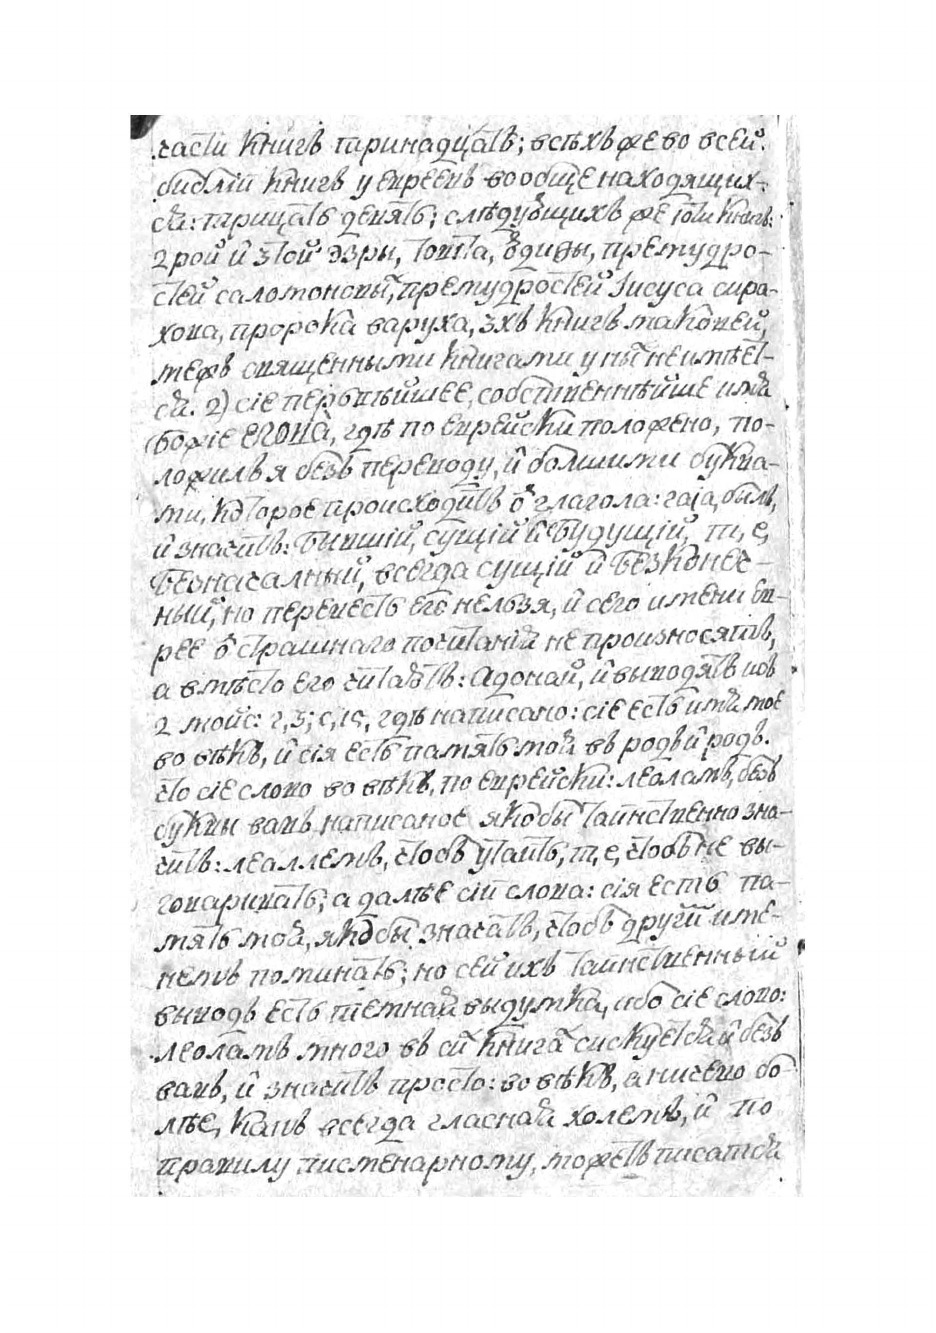 части книгъ тринадцать; всѣхъ же во всей
библіи книгъ у евреевъ вообще находящих-
ся: тритцать девять; слѣдующихъ же шти книгъ:
2рой и 3той эзры, товита, юдиѳы, премудро-
стей саломоновы, премудростей Іисуса сира-
хова, пророка варуха, 3хъ книгъ маковей,
межъ священными книгами у ны не имѣет-
ся. 2) сіе первѣйшее, собственнѣйше имя
Божіе ЕГОВА, гдѣ по еврейски положено, по-
ложилъ я безъ переводу, и болшими буква-
ми, которое происходитъ ѿ глагола: гаја, былъ,
и значитъ: Бывшій, сущій и будущій, т, е,
Безначалный, всегда сущій и Безконеч-
ный, но перевесть его нелзя, и сего имени ев-
рее ѿ страшнаго почитанія не произносятъ,
а вмѣсто его читаютъ: Адонай, и выводятъ изъ
2 мойс: г, 3; с, 15, гдѣ написано: сіе есть имя мое
во вѣкъ, и сія есть память моя въ родъ и родъ.
что сіе слово во вѣкъ, по еврейски: леоламъ, безъ
буквы вавъ написаное якобы таинственно зна-
читъ: леаллемъ, чтобъ утаить, т, е, чтобъ не вы-
говаривать; а далѣе сіи слова: сія есть па-
мять моя, якобы значатъ, чтобъ другій име-
немъ поминать; но сей ихъ таинственный
выводъ есть тщетная выдумка, ибо сіе слово:
леоламъ много въ сѣй книга сискуется и безъ
вавъ, и значитъ просто: во вѣкъ, а ничево бо-
лѣе, кавъ всегда гласная холемъ, и по
правилу писменарному, можетъ писатся